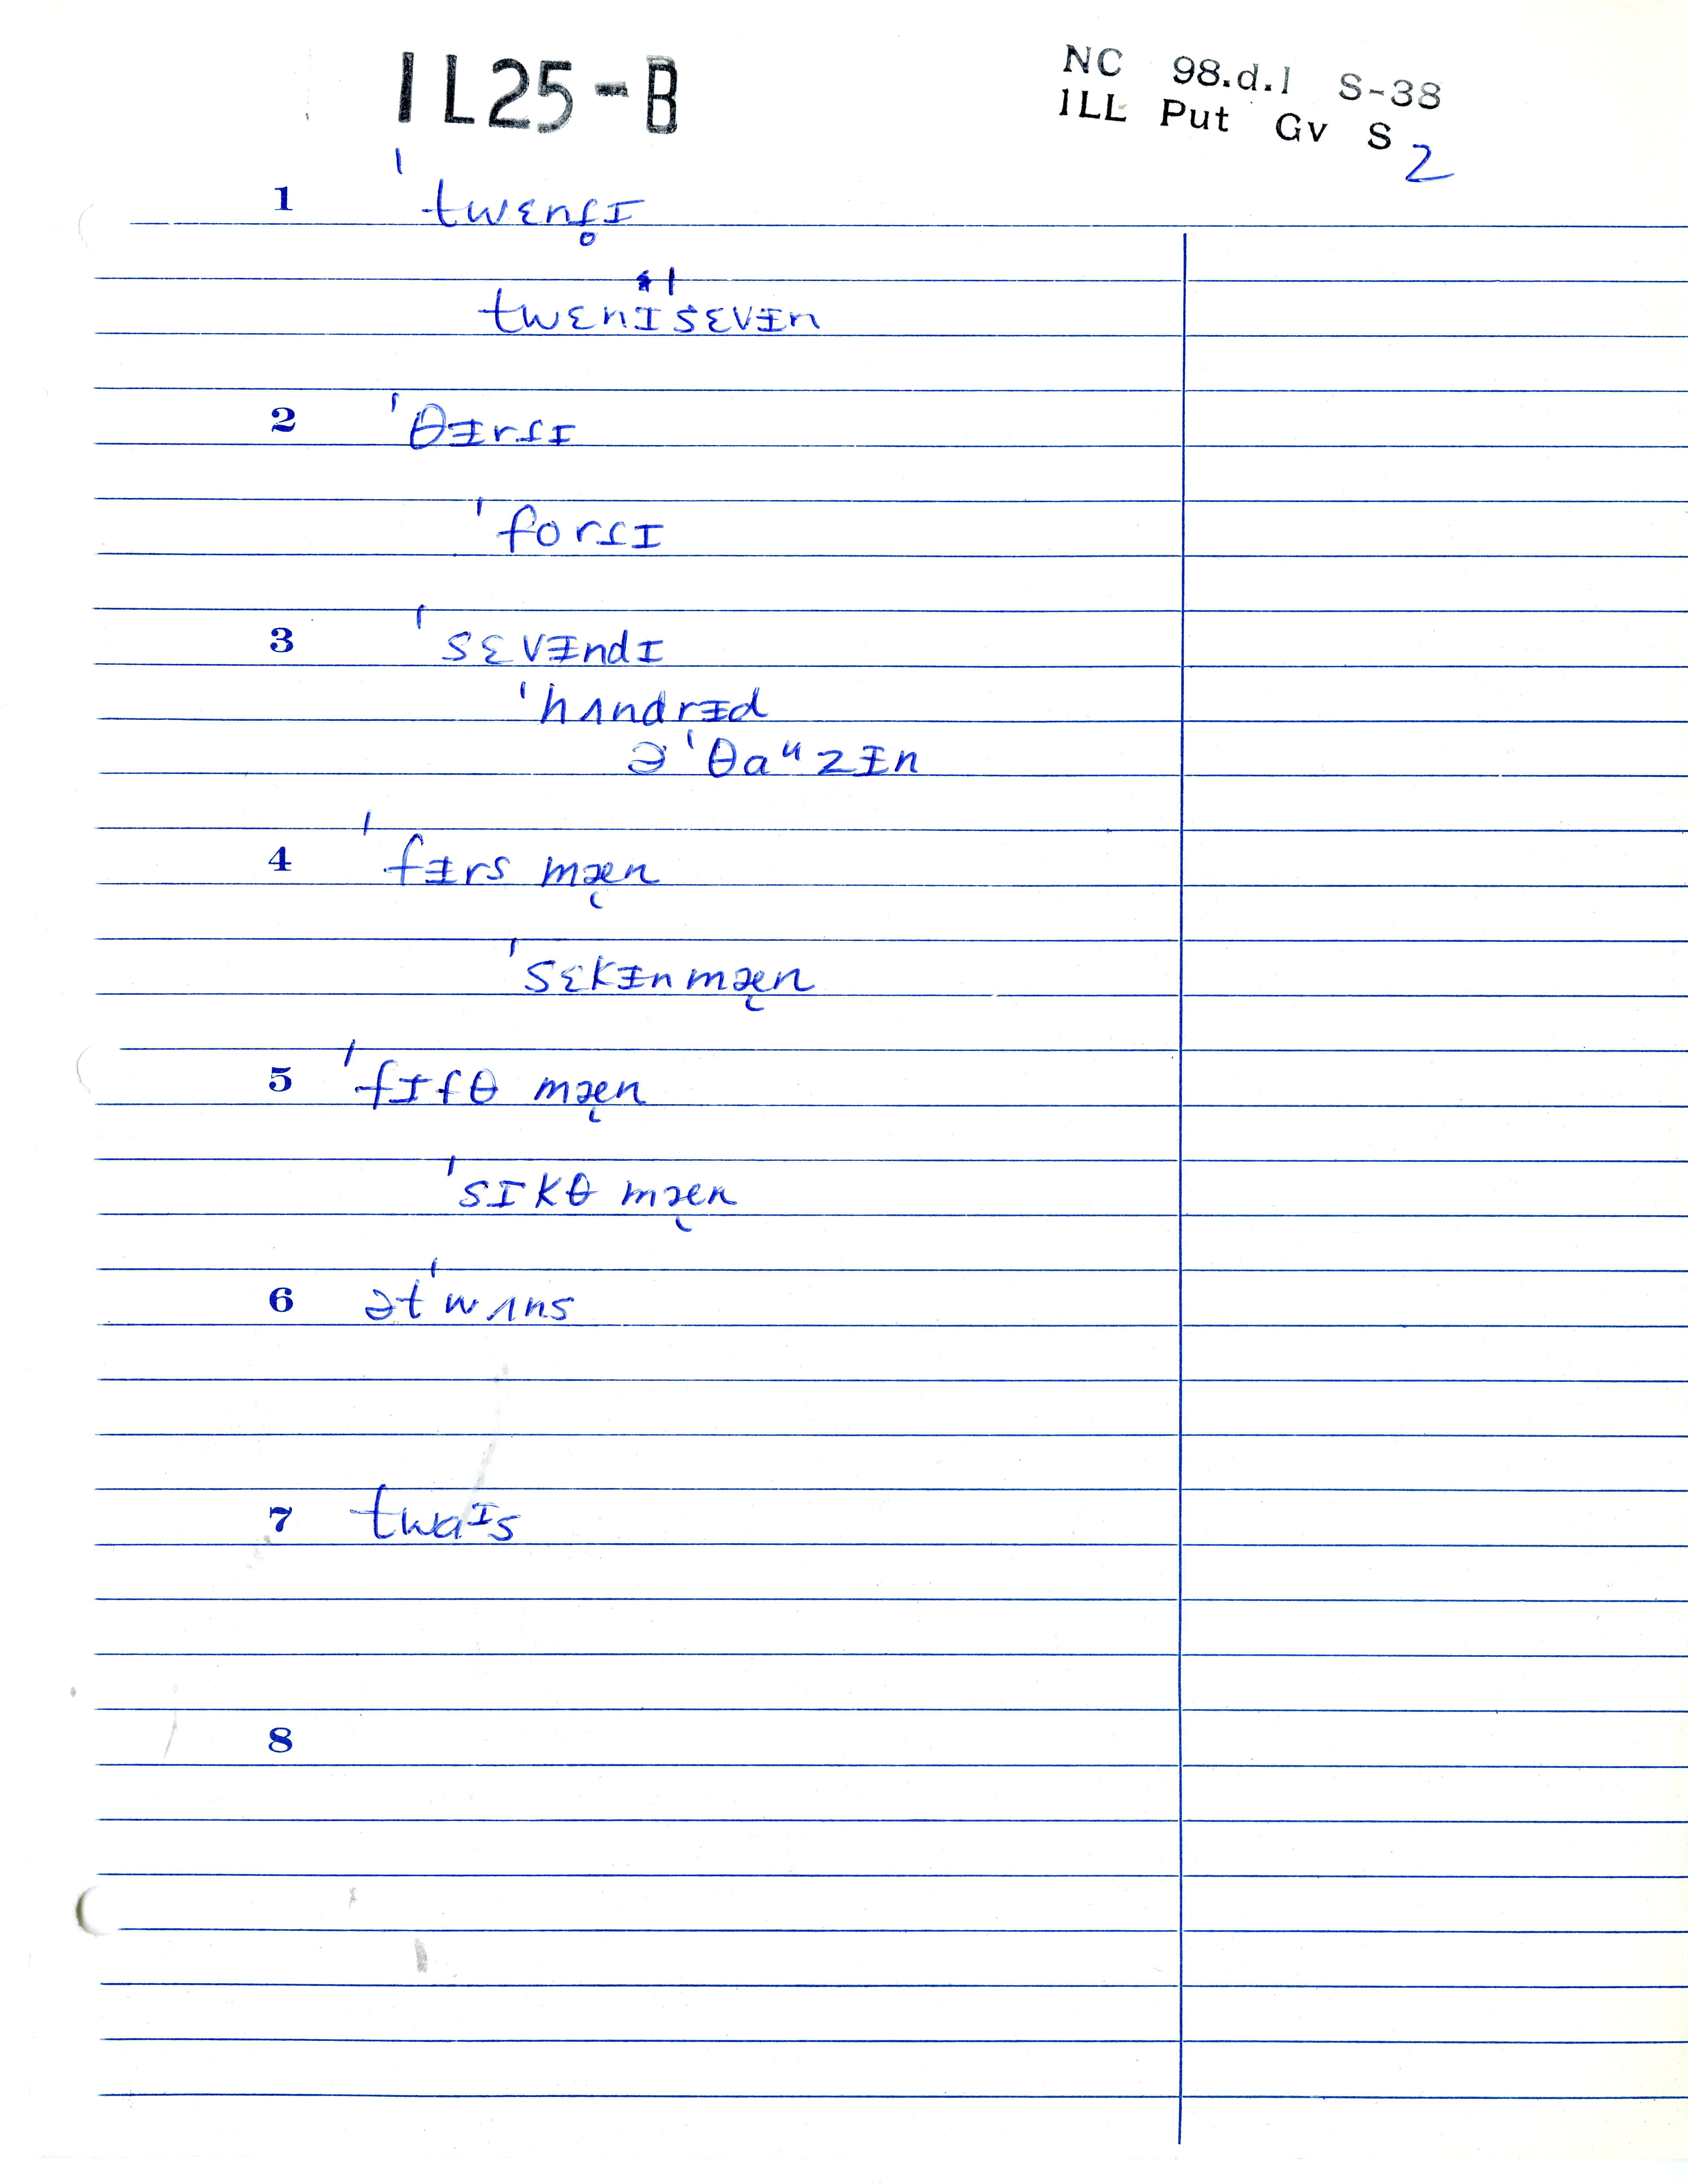 IL25-B
NC 98.d.1 S-38
ILL Put Gv S 2
1 ˈtwɛnt̬̥ɪ
twɛnɪˈsɛvᵻn
2 ˈθᵻrt̬ɪ
ˈfort̬ɪ
3 ˈsɛvᵻndɪ
ˈhʌndrᵻd
əˈθaᵘzᵻn
4 ˈfᵻrs mæ̨n
ˈsɛkᵻn mæ̨n
5 ˈfɪfθ mæ̨n
ˈsɪkθ mæ̨n
6 ətˈwʌns
7 twaᶦs
8